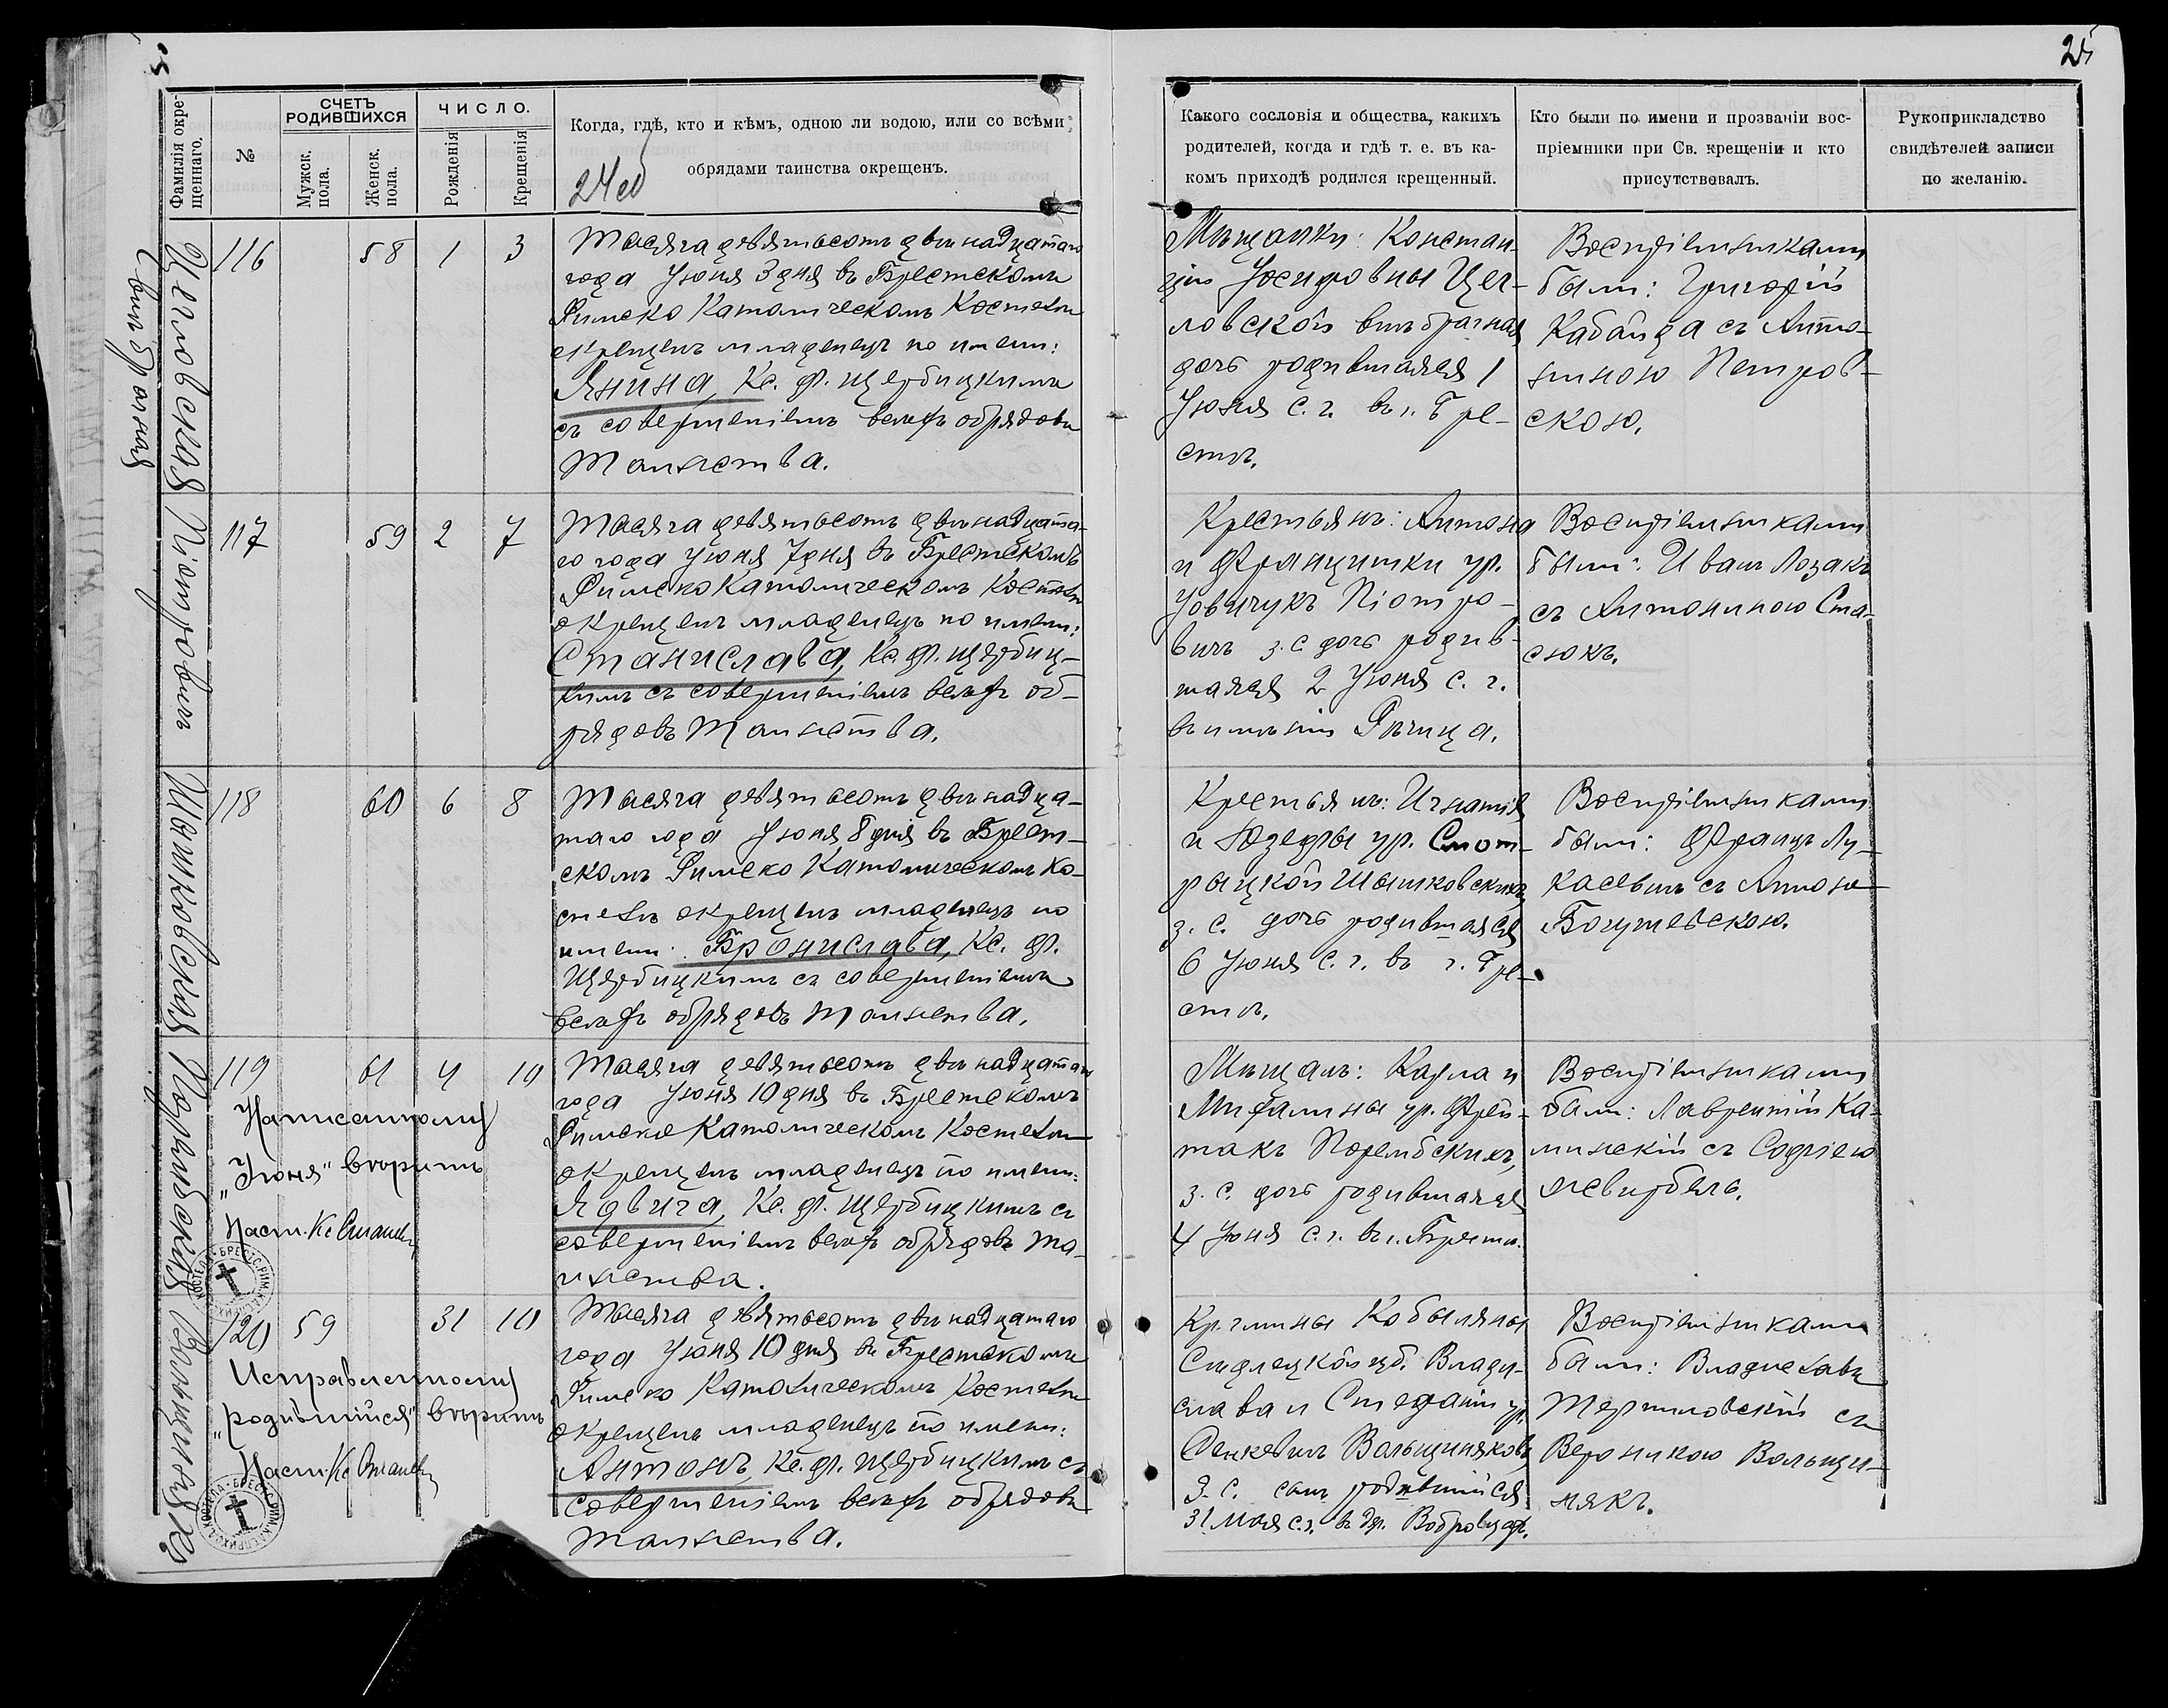 25
Фамилія окрещеннаго.
№
СЧЕТЪ РОДИВШИХСЯ
Мужск. пола.
Женск. пола.
ЧИСЛО.
Рожденія
Крещенія
Когда, гдѣ, кто и кѣмъ, одною ли водою, или со всѣми
обрядами таинства окрещенъ.
Какого сословія и общества, какихъ
родителей, когда и гдѣ т. е. въ ка-
комъ приходѣ родился крещенный.
Кто были по имени и прозваніи вос-
пріемники при Св. крещеніи и кто
присутствовалъ.
Рукоприкладство
свидѣтелей записи
по желанію.
внѣбрачная
116
58
1
3
Тысяча девятьсотъ двѣнадцатаго
года Іюня 3 дня въ Брестскомъ
Римско Католическомъ Костелѣ
окрещенъ младенецъ по имени:
Янина, Кс. Ф. Щербицкимъ
съ совершеніемъ всѣхъ обрядовъ
Таинства.
Мѣщанки: Констан-
ціи Іосифовны
ловской внѣбрачная
дочь родившаяся 1
Іюня с. г. въ г. Бре-
стѣ.
Воспріемниками
были: Григорій
Кабайда съ Анто-
ниною Петров-
скою.
Піотровичъ
117
59
2
7
Тысяча девятьсотъ двѣнадцата-
го года Іюня 7 дня въ Брестскомъ
Римско Католическомъ Костелѣ
окрещенъ младенецъ по имени:
Станислава, Кс. Ф. Щербиц-
кимъ съ совершеніемъ всѣхъ об-
рядовъ Таинства.
Крестьянъ: Антона
и Францишки ур.
Іовичукъ Піотро-
вичъ з. с. дочь родив-
шаяся 2 Іюня с. г.
въ имѣніи Рѣчица.
Воспріемниками
были: Иванъ Лозакъ
съ Антониною Ста-
сюкъ.
Шышковская
118
60
6
8
Тысяча девятьсотъ двѣнадца-
таго года Іюня 8 дня въ Брест-
скомъ Римско Католическомъ Ко-
стелѣ окрещенъ младенецъ по
имени: Бронислава, Кс. Ф.
Щербицкимъ съ совершеніемъ
всѣхъ обрядовъ Таинства.
Крестьянъ: Игнатія
и Юзефы ур. Смот-
рыцкой Шышковскихъ
з. с. дочь родившаяся
6 Іюня с. г. въ г. Бре-
стѣ.
Воспріемниками
были: Францъ Лу-
касевичъ съ
Богушевскою.
Порембская
119
61
4
10
Написанному
"Іюня" вѣрить
Наст. Кс.
Тысяча девятьсотъ двѣнадцатаго
года Іюня 10 дня въ Брестскомъ
Римско Католическомъ Костелѣ
окрещенъ младенецъ по имени:
Ядвига, Кс. Ф. Щербицкимъ съ
совершеніемъ всѣхъ обрядовъ Та-
инства.
Мѣщанъ: Карла и
Михалины ур. Фрей-
такъ Порембскихъ,
з. с. дочь родившаяся
4 Іюня с. г. въ г. Брестѣ.
Воспріемниками
были: Лаврентій Ка-
минскій съ Софіею
120
59
31
10
Исправленному
"родившійся" вѣрить
Наст. Кс.
Тысяча девятьсотъ двѣнадцатаго
года Іюня 10 дня въ Брестскомъ
Римско Католическомъ Костелѣ
окрещенъ младенецъ по имени:
Антонъ, Кс. Ф. Щербицкимъ съ
совершеніемъ всѣхъ обрядовъ
Таинства.
Кр. гмины Кобыляны
Сѣдлецкой губ. Влади-
слава и Стефаніи ур.
Сенкевичъ Вольщиняковъ,
з. с. сынъ родившійся
31 Мая с. г. въ
Воспріемниками
были: Владиславъ
съ
Вероникою Вольщи-
някъ.